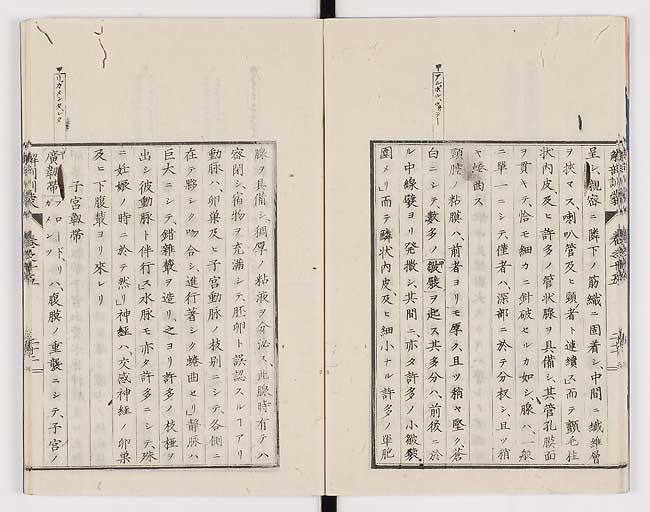 アルボルヴィテー
呈シ、親密ニ隣下ノ筋織ニ固着シ、中間ニ纖維層
ヲ狹マス喇叭管及ヒ頸者ト連續ス」而テ顫毛柱
狀內皮、及ヒ許多ノ管狀腺ヲ具備シ、其管孔膜面
ヲ貫キテ、恰モ細カニ針破セルカ如シ、腺ハ、一般
ニ單一ニシテ、僅者ハ、深部ニ於テ分杈シ、且ツ稍
ヤ蜷曲ス
頸腔ノ粘膜ハ、前者ヨリモ厚ク、且ツ稍ヤ堅ク、蒼
白ニシテ、數多ノ皺襞ヲ起ス其多分ハ、前後ニ於
ル中線襞ヨリ發撒シ、其間ニ、亦タ許多ノ小皺襞
圍メリ」而テ鱗狀內皮及ヒ細小ナル許多ノ單肥
リガメンタレタ
腺ヲ具備シ、稠厚ノ粘液ヲ分泌ス、此腺時有テハ
窄閉シ、宿物ヲ充滿シテ、胚卵ト誤認スルコアリ
動脈ハ、卵巢及ヒ子宮動脈ノ枝別ニシテ、各側ニ
在テ夥シク吻合シ、進行著シク蜷曲セリ」靜脈ハ、
巨大ニシテ、錯雜叢ヲ造リ、之ヨリ許多ノ枝椏ヲ
出シ彼動脈ト伴行ス」水脈モ亦タ許多ニシテ、殊
ニ妊娠ノ時ニ於テ然リ」神經ハ、交感神經ノ卵巢
及ヒ下腹叢ヨリ來レリ
子宮靱帶
廣靱帶ブロードリガメンツハ、腹膜ノ重襲ニシテ、子宮ノ
解剖訓蒙